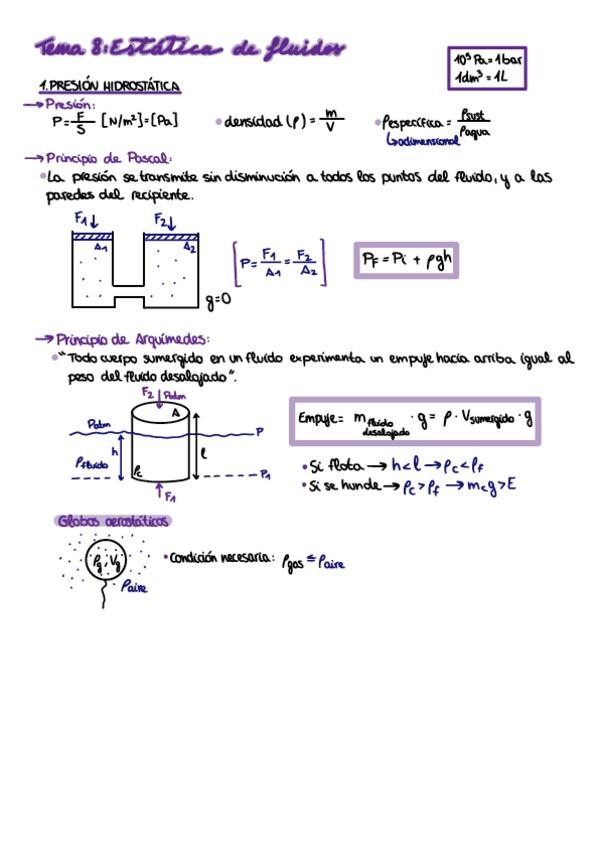 Tema 8: Estática de fluidos
10⁵ Pa = 1 bar
1 dm³ = 1L
1. PRESIÓN HIDROSTÁTICA
→ Presión:
P = F/S [N/m²] = [Pa]
• densidad (ρ) = m/V
• ρespecífica = ρsust/ρagua
↳ adimensional
→ Principio de Pascal:
• La presión se transmite sin disminución a todos los puntos del fluido, y a las
paredes del recipiente.
F1↓ F2↓
A1 A2
g=0
[P = F1/A1 = F2/A2]
PF = Pi + ρgh
→ Principio de Arquímedes:
• "Todo cuerpo sumergido en un fluido experimenta un empuje hacia arriba igual al
peso del fluido desalojado".
F2↓ Patm
A
Patm
P
h
l
ρfluido
ρc
P1
↑F1
Empuje = m fluido desalojado · g = ρ · Vsumergido · g
• Si flota → h<l → ρc<ρf
• Si se hunde → ρc>ρf → mcg>E
Globos aerostáticos
ρg, Vg
ρaire
• Condición necesaria: ρgas ≤ ρaire